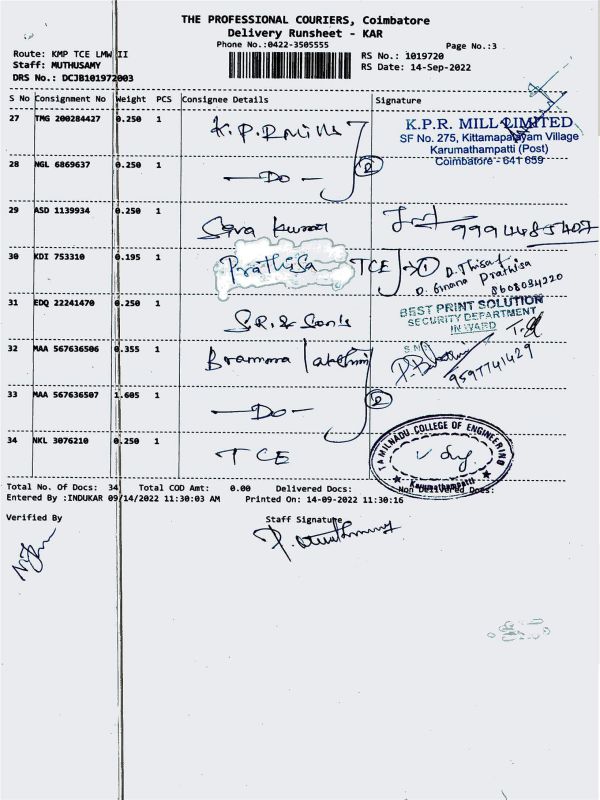 THE PROFESSIONAL COURIERS, Coimbatore
Delivery Runsheet - KAR
Phone No.:0422-3505555
Page No.:3
Route: KMP TCE LMW II
Staff: MUTHUSAMY
DRS No.: DCJB101972003
RS No.: 1019720
RS Date: 14-Sep-2022
S No Consignment No Weight PCS Consignee Details Signature
27 TMG 200284427 0.250 1 K.P.R mills
K.P.R. MILL LIMITED
SF No. 275, Kittamapalayam Village
Karumathampatti (Post)
Coimbatore - 641 659
28 NGL 6869637 0.250 1 — Do — 2
29 ASD 1139934 0.250 1 Kumar
30 KDI 753310 0.195 1 Prathisa TCE 1
D. Thisa
D. Gnana Prathisa
8608084220
31 EDQ 22241470 0.250 1 S.R. & Son's
BEST PRINT SOLUTION
SECURITY DEPARTMENT
INWARD
32 MAA 567636506 0.355 1 Bramma Lakshmi
9597741429
33 MAA 567636507 1.605 1 — Do — 2
34 NKL 3076210 0.250 1 TCE
TAMILNADU COLLEGE OF ENGINEERING
Karumathampatti
Total No. Of Docs: 34 Total COD Amt: 0.00 Delivered Docs: Non Delivered Docs:
Entered By :INDUKAR 09/14/2022 11:30:03 AM Printed On: 14-09-2022 11:30:16
Verified By
Staff Signature